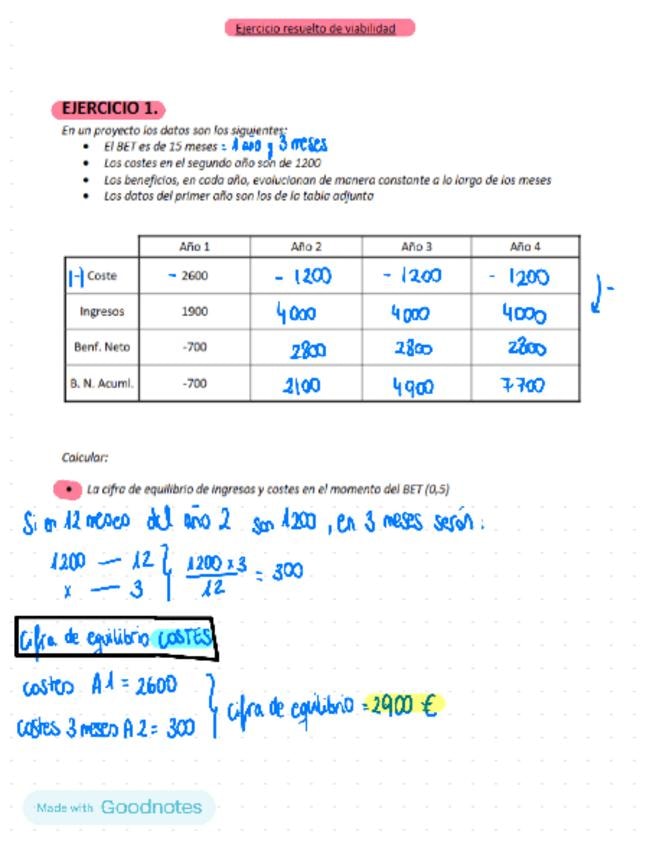 Ejercicio resuelto de viabilidad
EJERCICIO 1.
En un proyecto los datos son los siguientes:
• El BET es de 15 meses = 1 año y 3 meses
• Los costes en el segundo año son de 1200
• Los beneficios, en cada año, evolucionan de manera constante a lo largo de los meses
• Los datos del primer año son los de la tabla adjunta
Año 1 Año 2 Año 3 Año 4
(-) Coste - 2600 - 1200 - 1200 - 1200
Ingresos 1900 4000 4000 4000
Benf. Neto -700 2800 2800 2800
B. N. Acuml. -700 2100 4900 7700
Calcular:
• La cifra de equilibrio de ingresos y costes en el momento del BET (0,5)
Si en 12 meses del año 2 son 1200, en 3 meses serán:
1200 — 12
x — 3
1200 x 3
12
= 300
cifra de equilibrio COSTES
costes A1 = 2600
costes 3 meses A2 = 300
cifra de equilibrio = 2900 €
Made with Goodnotes